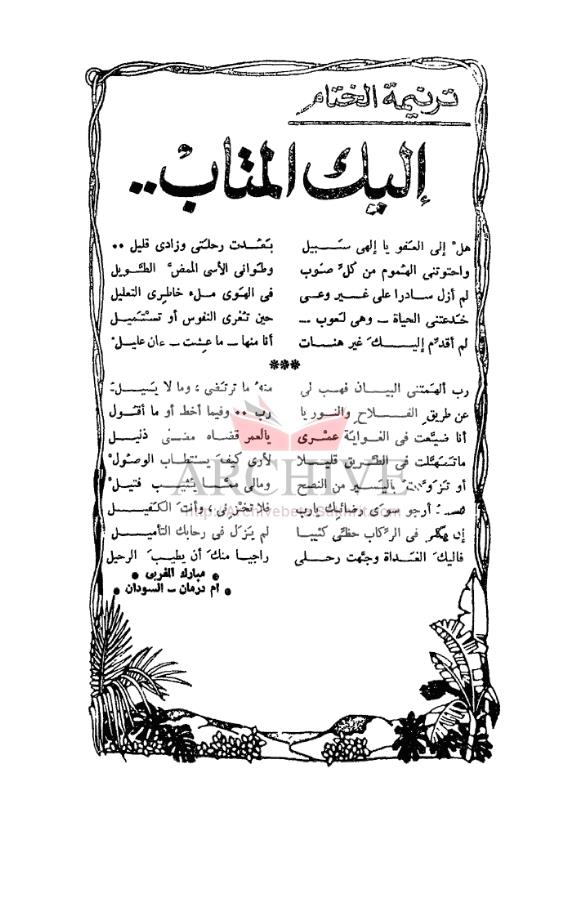 ترنيمة الختام
إليك المتاب..
هل إلى العفو يا إلهى سبيل بعدت رحلتى وزادى قليل ..
واحتوتنى الهموم من كل صوب وطوانى الأسى الممض الطويل
لم أزل سادرا على غير وعى فى الهوى ملء خاطرى التعليل
خدعتنى الحياة ـ وهى لعوب ـ حين تغرى النفوس أو تستميل
لم أقدم إليك غير هنات أنا منها ـ ما عشت ـ عان عليل
***
رب ألهمتنى البيان فهب لى منه ما ترتضى ، وما لا يسيل
عن طريق الفلاح والنور يا رب .. وفيما أخط أو ما أقول
أنا ضيعت فى الغواية عمرى يالعمر قضاه مضنى ذليل
ما تمهلت فى الطريق قليلا لأرى كيف يستطاب الوصول
أو تزودت باليسير من النصح ومالى مما يثيب فتيل
لست أرجو سوى رضائك يارب فلا تخزنى ، وأنت الكفيل
إن يكن فى الركاب حظى كئيبا لم يزل فى رحابك التأميل
فاليك الغداة وجهت رحلى راجيا منك أن يطيب الرحيل
• مبارك المغربى •
• أم درمان ـ السودان •
ARCHIVE